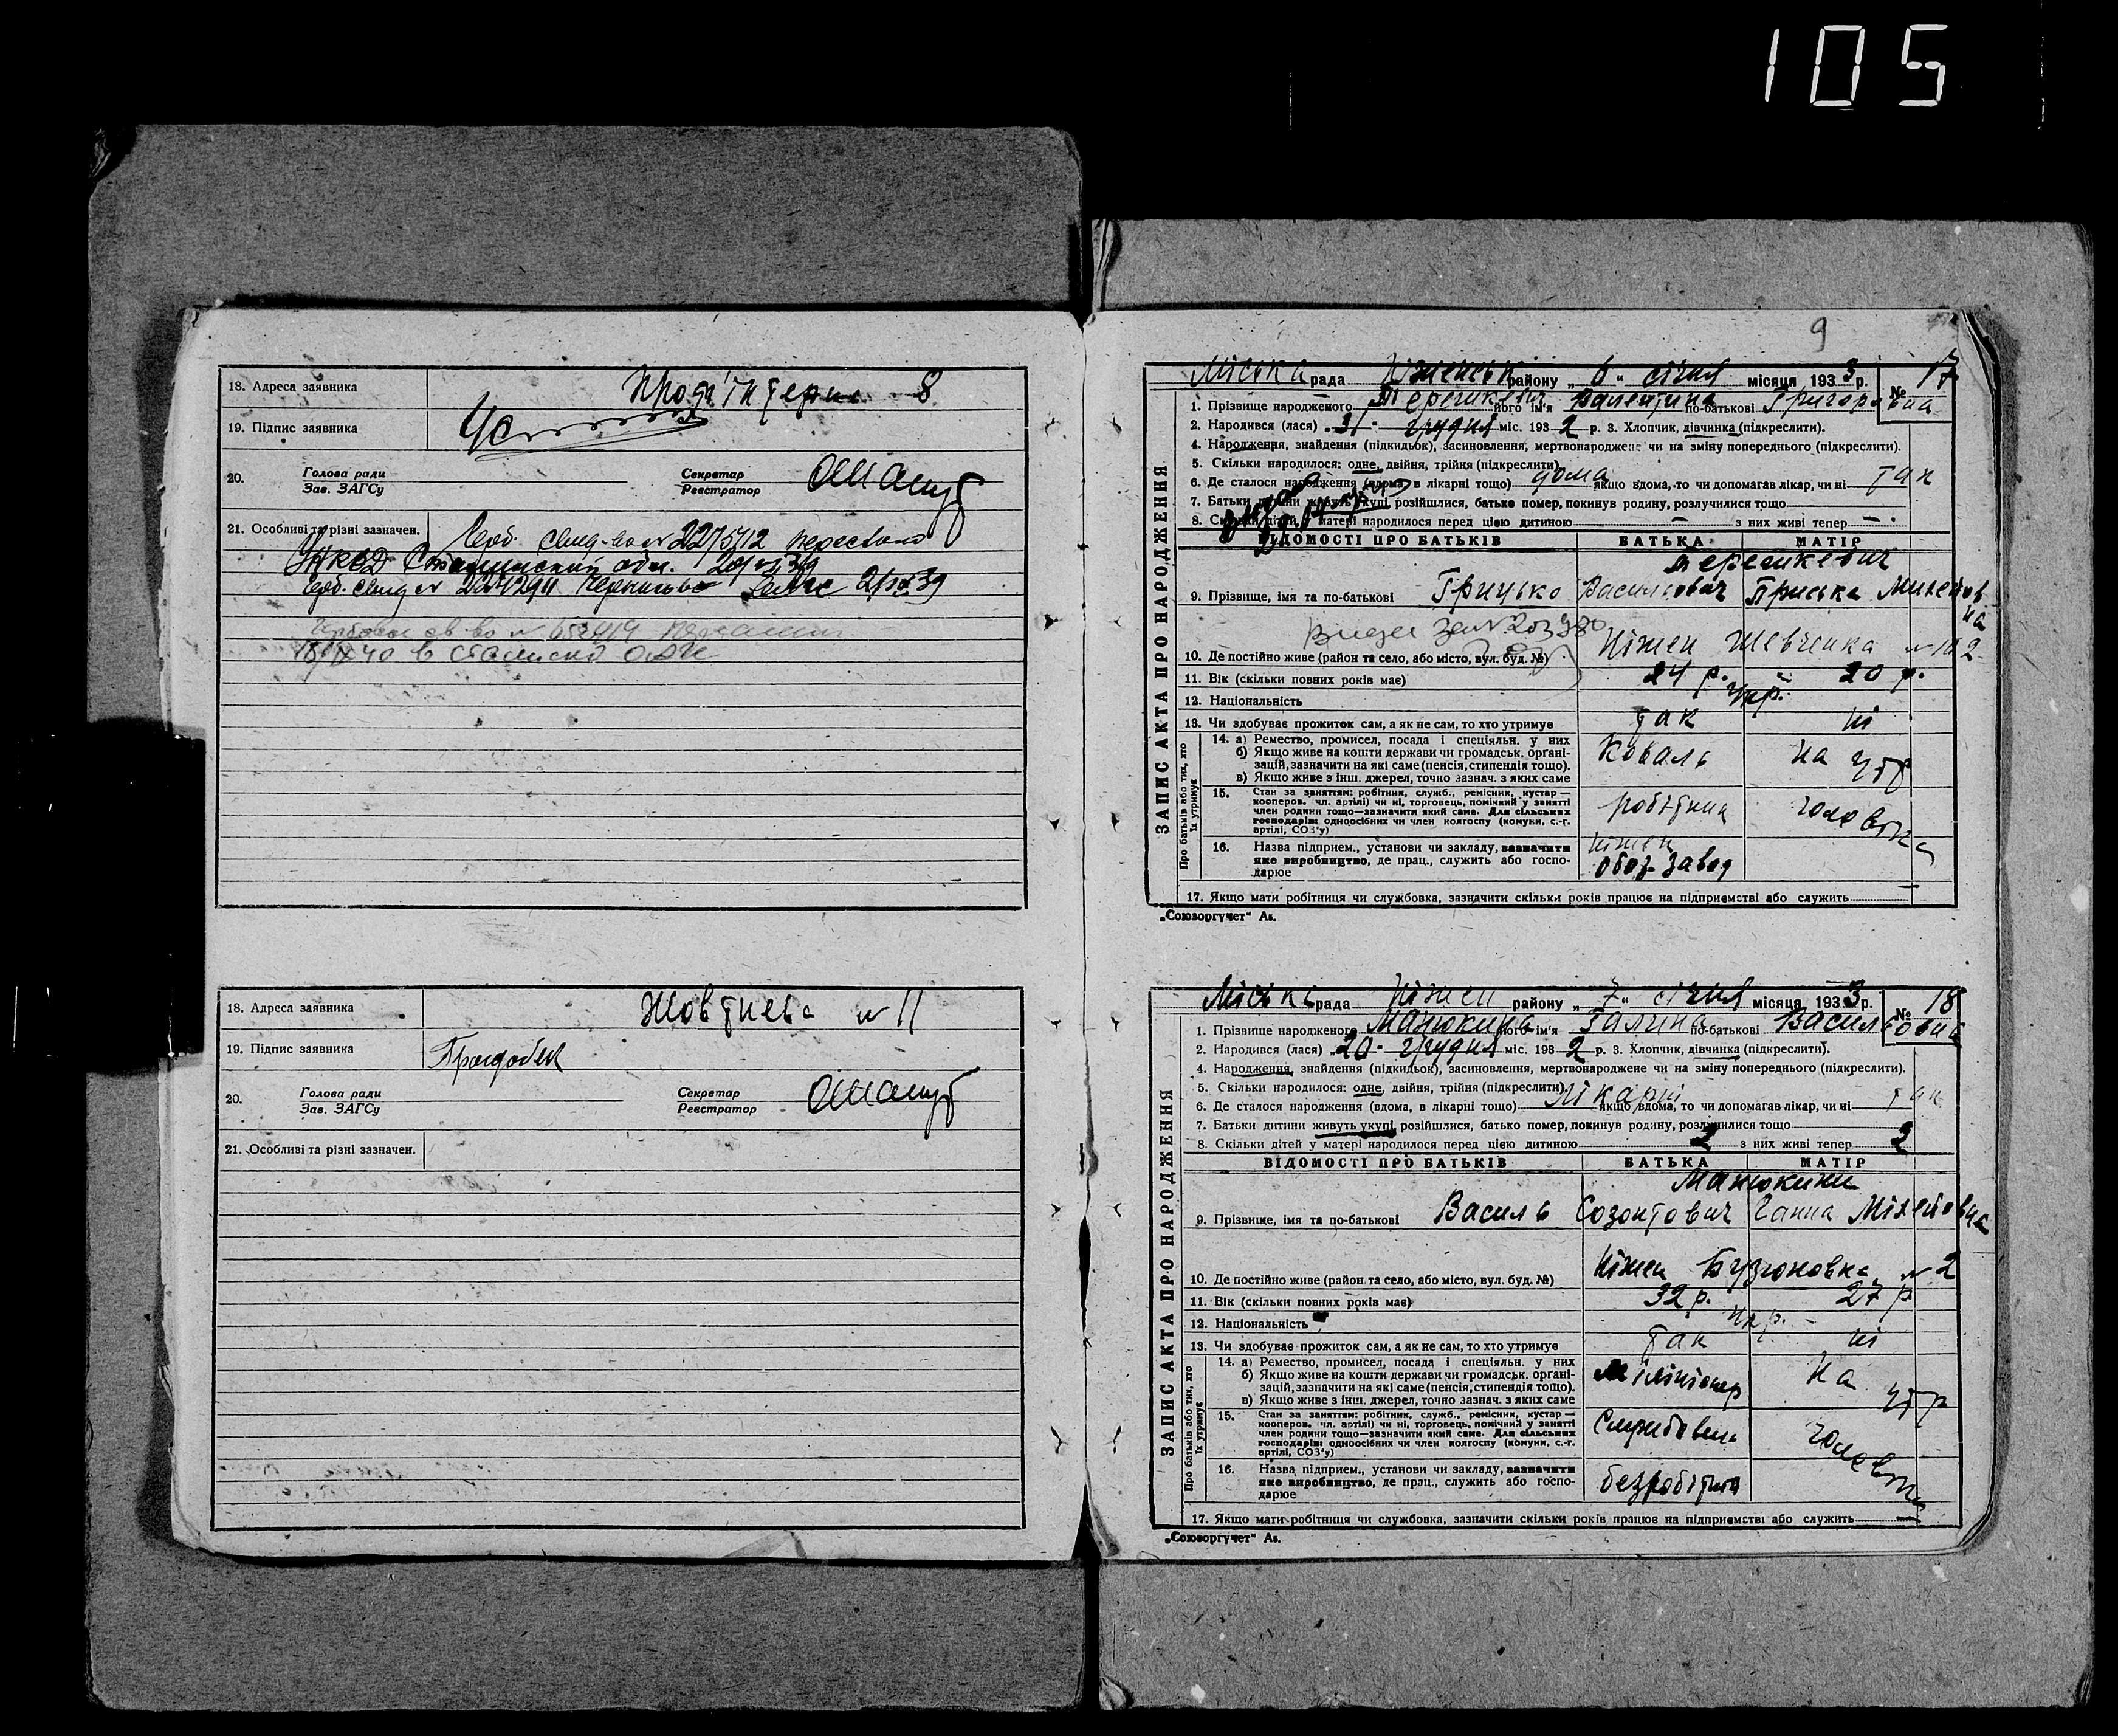 105
18. Адреса заявника Профінтерна 8
19. Підпис заявника
20. Голова ради Секретар
Зав. ЗАГСу Реєстратор
21. Особливі та різні зазначен. Герб. свид-во № 2275712
НКВД обл. 39
Герб. свид № 39
в
18. Адреса заявника Жовтнева № 11
19. Підпис заявника
20. Голова ради Секретар
Зав. ЗАГСу Реєстратор
21. Особливі та різні зазначен.
9
Міська рада Ніженськ району „ 6 “ січня місяця 1933 р. № 17
ЗАПИС АКТА ПРО НАРОДЖЕННЯ
1. Прізвище народженого Терешкевич його ім'я Валентина по-батькові Григоровна
2. Народився (лася) 31 грудня міс. 1932 р. 3. Хлопчик, дівчинка (підкреслити).
4. Народження, знайдення (підкидьок), засиновлення, мертвонароджене чи на зміну попереднього (підкреслити).
5. Скільки народилося: одне, двійня, трійня (підкреслити)
6. Де сталося народження (вдома, в лікарні тощо) дома якщо вдома, то чи допомагав лікар, чи ні так
7. Батьки дитини живуть укупі, розійшлися, батько помер, покинув родину, розлучилися тощо
8. Скільки дітей у матері народилося перед цією дитиною — з них живі тепер —
ВІДОМОСТІ ПРО БАТЬКІВ БАТЬКА МАТІР
Терешкевич
9. Прізвище, імя та по-батькові Грицько Васильович Приська Михейовна
10. Де постійно живе (район та село, або місто, вул. буд. №) Ніжен Шевченка № 102
11. Вік (скільки повних років має) 24 р. 20 р.
12. Національність Укр.
13. Чи здобуває прожиток сам, а як не сам, то хто утримує так ні
Про батьків або тих, хто їх утримує
14. а) Ремество, промисел, посада і спеціяльн. у них
б) Якщо живе на кошти держави чи громадськ. організацій, зазначити на які саме (пенсія, стипендія тощо).
в) Якщо живе з інш. джерел, точно зазнач. з яких саме
Коваль на утр
15. Стан за заняттям: робітник, служб., ремісник, кустар—
кооперов. чл. артілі) чи ні, торговець, помічний у занятті
член родини тощо—зазначити який саме. Для сільських
господарів: одноосібних чи член колгоспу (комуни, с.-г.
артілі, СОЗ'у)
робітник чоловіка
16. Назва підприєм., установи чи закладу, зазначити
яке виробництво, де прац., служить або господарює
Ніжен
Обоз. завод
17. Якщо мати робітниця чи службовка, зазначити скільки років працює на підприємстві або служить —
„Союзоргучет“ Ав.
Міська рада Ніжен району „ 7 “ січня місяця 1933 р. № 18
ЗАПИС АКТА ПРО НАРОДЖЕННЯ
1. Прізвище народженого Манюкина його ім'я Галина по-батькові Васильовна
2. Народився (лася) 20 грудня міс. 1932 р. 3. Хлопчик, дівчинка (підкреслити).
4. Народження, знайдення (підкидьок), засиновлення, мертвонароджене чи на зміну попереднього (підкреслити).
5. Скільки народилося: одне, двійня, трійня (підкреслити)
6. Де сталося народження (вдома, в лікарні тощо) лікарні якщо вдома, то чи допомагав лікар, чи ні так
7. Батьки дитини живуть укупі, розійшлися, батько помер, покинув родину, розлучилися тощо
8. Скільки дітей у матері народилося перед цією дитиною 2 з них живі тепер 2
ВІДОМОСТІ ПРО БАТЬКІВ БАТЬКА МАТІР
Манюкини
9. Прізвище, імя та по-батькові Василь Созонтович Ганна Міхейовна
10. Де постійно живе (район та село, або місто, вул. буд. №) Ніжен № 2
11. Вік (скільки повних років має) 32 р. 27 р
12. Національність Укр.
13. Чи здобуває прожиток сам, а як не сам, то хто утримує так ні
Про батьків або тих, хто їх утримує
14. а) Ремество, промисел, посада і спеціяльн. у них
б) Якщо живе на кошти держави чи громадськ. організацій, зазначити на які саме (пенсія, стипендія тощо).
в) Якщо живе з інш. джерел, точно зазнач. з яких саме
Міліціонер на утр
15. Стан за заняттям: робітник, служб., ремісник, кустар—
кооперов. чл. артілі) чи ні, торговець, помічний у занятті
член родини тощо—зазначити який саме. Для сільських
господарів: одноосібних чи член колгоспу (комуни, с.-г.
артілі, СОЗ'у)
Службовець чоловіка
16. Назва підприєм., установи чи закладу, зазначити
яке виробництво, де прац., служить або господарює
безробітний
17. Якщо мати робітниця чи службовка, зазначити скільки років працює на підприємстві або служить —
„Союзоргучет“ Ав.